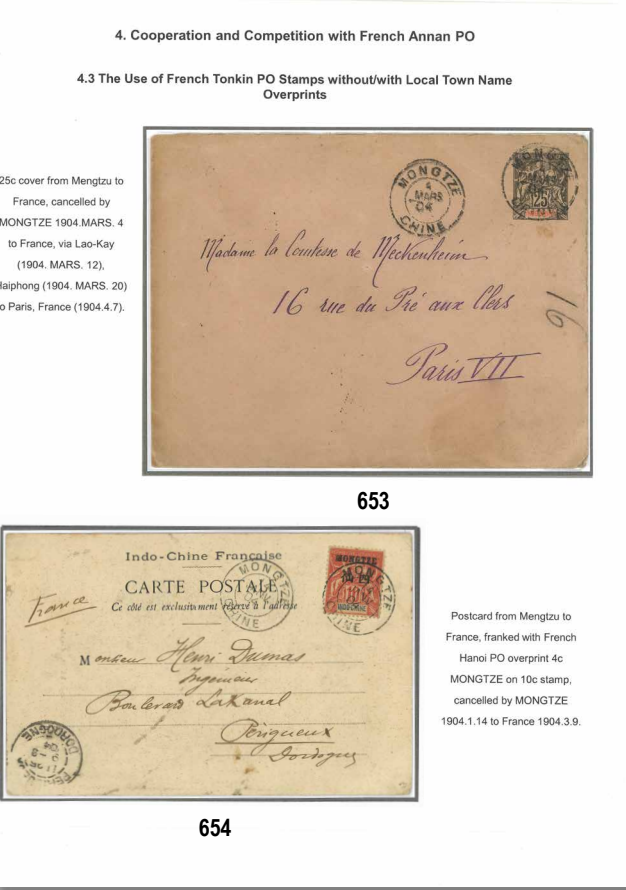 4. Cooperation and Competition with French Annan PO
4.3 The Use of French Tonkin PO Stamps without/with Local Town Name
Overprints
25c cover from Mengtzu to
France, cancelled by
MONGTZE 1904.MARS. 4
to France, via Lao-Kay
(1904. MARS. 12),
Haiphong (1904. MARS. 20)
to Paris, France (1904.4.7).
MONGTZE
4
MARS
04
CHINE
MONGTZE
25
Madame la Comtesse de Meckenheim
16 rue du Pré aux Clers
Paris VII
16
653
Indo-Chine Française
CARTE POSTALE
Ce côté est exclusivement réservé à l'adresse
France
MONGTZE
CHINE
MONGTZE
INDO-CHINE
MONGTZE
CHINE
Monsieur Henri Dumas
Ingénieur
Boulevard Lakanal
Périgueux
Dordogne
DORDOGNE
654
Postcard from Mengtzu to
France, franked with French
Hanoi PO overprint 4c
MONGTZE on 10c stamp,
cancelled by MONGTZE
1904.1.14 to France 1904.3.9.